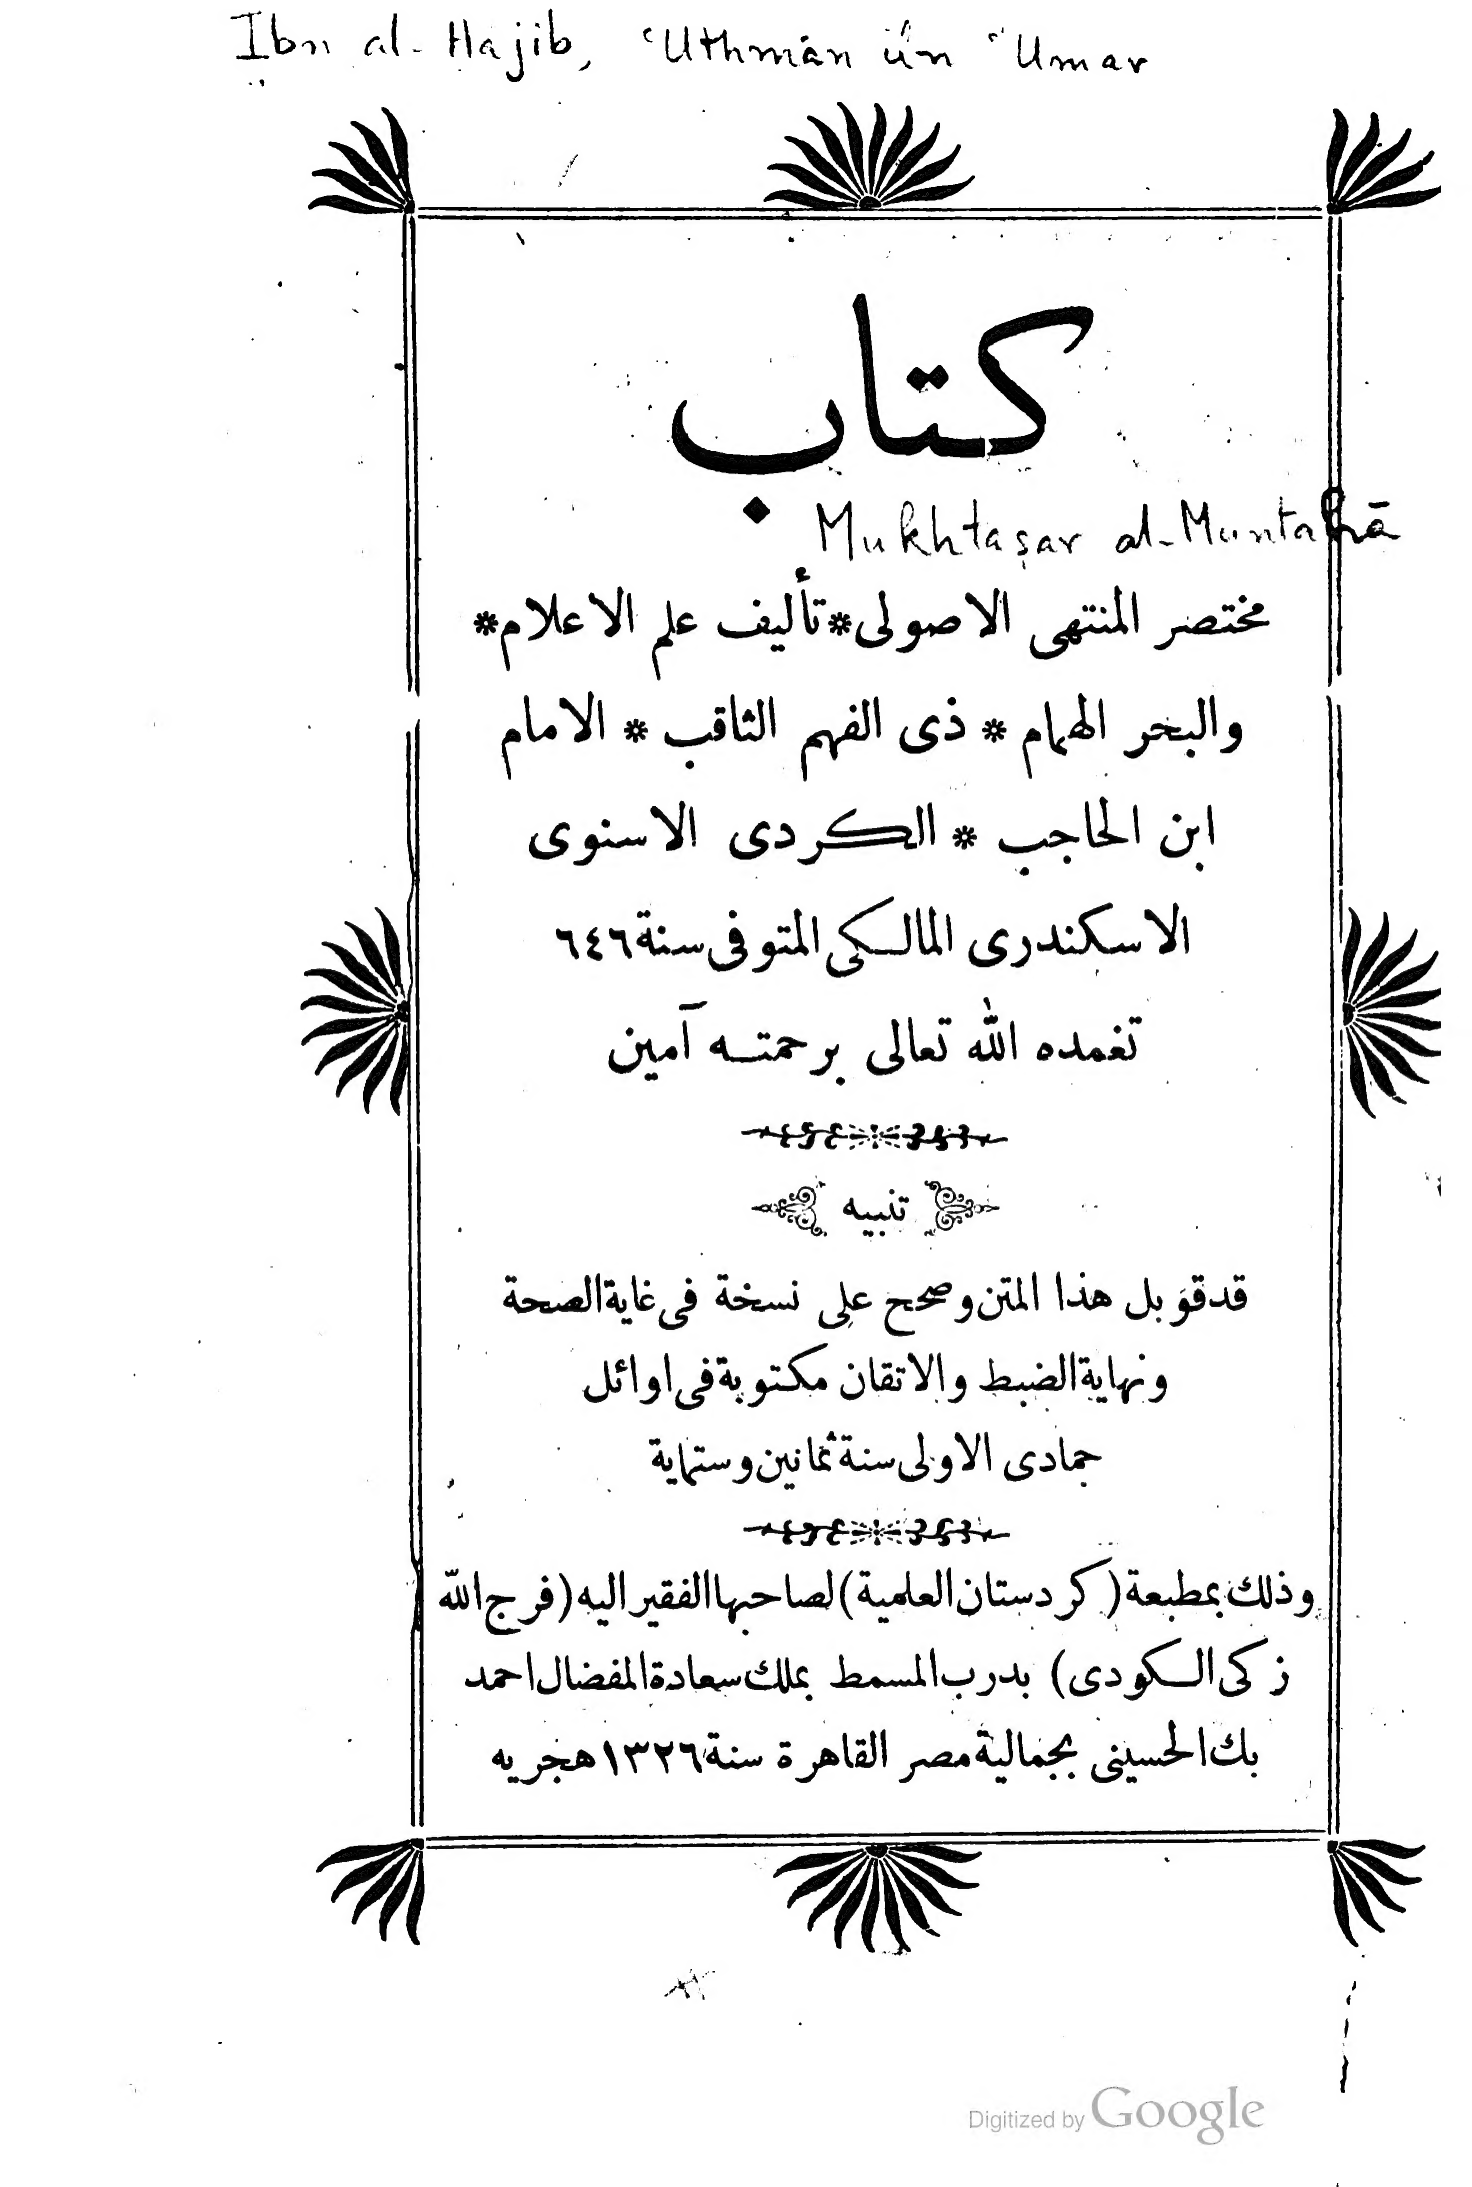 Ibn al-Hajib, ʿUthmān ibn ʿUmar
كتاب
Mukhtaṣar al-Muntahā
مختصر المنتهى الاصولى * تأليف علم الاعلام *
والبحر الهمام * ذى الفهم الثاقب * الامام
ابن الحاجب * الكردى الاسنوى
الاسكندرى المالكى المتوفى سنة ٦٤٦
تغمده الله تعالى برحمته آمين
تنبيه
قد قوبل هذا المتن وصحح على نسخة فى غاية الصحة
ونهاية الضبط والاتقان مكتوبة فى اوائل
جمادى الاولى سنة ثمانين وستماية
وذلك بمطبعة (كردستان العلمية) لصاحبها الفقير اليه (فرج الله
زكى الكودى) بدرب المسمط بملك سعادة المفضال احمد
بك الحسينى بجمالية مصر القاهرة سنة ١٣٢٦ هجريه
Digitized by Google